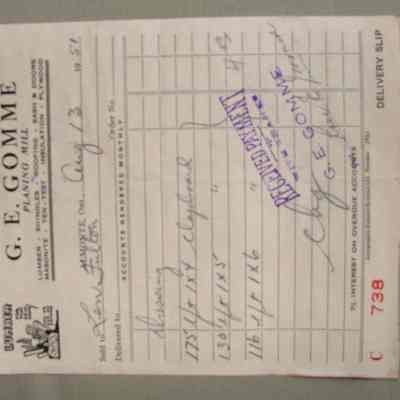 G. E. GOMME
PLANING MILL
LUMBER - SHINGLES - ROOFING - SASH & DOORS
MASONITE - TEN-TEST - INSULATION - PLYWOOD
ALMONTE, Ont. Aug 13 1951
Sold to Lorn Fulton
Delivered to Order No.
ACCOUNTS RENDERED MONTHLY
Dressing
175 l/ft 1x4 Clapboard
130 l/ft 1x5 "
116 l/ft 1x6 "
RECEIVED PAYMENT
G. E. GOMME
Chg
% INTEREST ON OVERDUE ACCOUNTS
C 738 DELIVERY SLIP